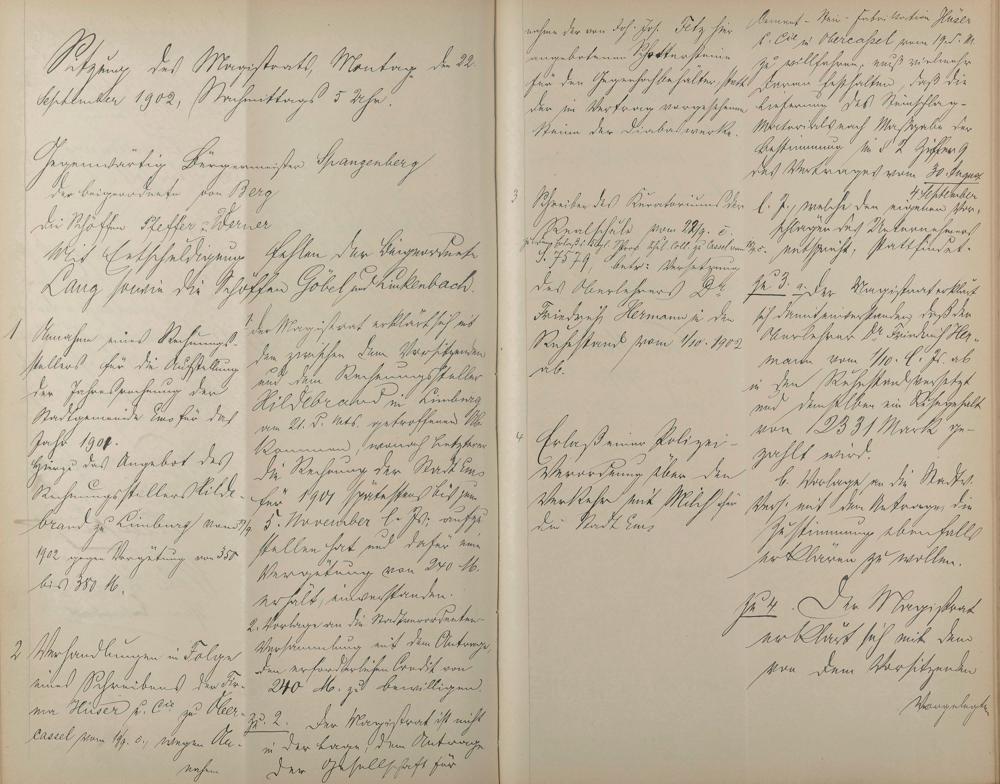 Sitzung des Magistrats, Montag den 22
September 1902, Nachmittags 5 Uhr.
Gegenwärtig Bürgermeister Spangenberg
der beigeordnete von Berg
die Schöffen Steffer Werner
Mit Entschuldigung fehlen der Beigeordnete
Lang sowie die Schöffen Göbel und Linkenbach.
1 Annahme eines Rechnungs-
stellers für die Aufstellung
der Jahresrechnung der
Stadtgemeinde Ems für das
Jahr 1901.
Hierzu das Angebot des
Rechnungsstellers Hilde-
brand zu Limburg vom
1902 gegen Vergütung von 350
bis 380 M.
2 Verhandlungen in Folge
eines Schreibens der Fir-
ma Hüser u. Cie zu Ober-
cassel vom c., wegen An-
nahm
1 der Magistrat erklärt sich mit
den zwischen dem Vorsitzenden
und dem Rechnungssteller
Hildebrand in Limburg
am 21. d. Mts. getroffenen Ab-
kommen, wonach Letzterer
die Rechnung der Stadt Ems
für 1901 spätestens bis zum
5. November l. Js. aufzu-
stellen hat und dafür eine
Vergütung von 240 M.
erhält, einverstanden.
2. Vorlage an die Stadtverordneten-
Versammlung mit dem Antrage,
den erforderlichen Credit von
240 M. zu bewilligen.
Zu 2. Der Magistrat ist nicht
in der Lage, dem Antrage
der Gesellschaft für
nahme der von Joh. Jos. Fetz hier
angebotenen Schottersteine
für den Gegenhochbehälter statt
der in Vertrag vorgesehenen
Steine der Diabaswerke.
3 Schreiben des Kuratoriums der
Realschule vom 22/9. c.
S. 7579, betr: Versetzung
des Oberlehrers Dr.
Friedrich Hermann in den
Ruhestand vom 1/10. 1902
ab.
4 Erlaß einer Polizei-
Verordnung über den
Verkehr mit Milch für
die Stadt Ems
Cement-Stein-Fabrikation Hüser
u. Cie in Obercassel vom 19. d. M.
zu willfahren, muß vielmehr
daran festhalten, daß die
Lieferung des Steinschlag-
Materials nach Maßgabe der
Bestimmung in § 2 Ziffer 9
des Vertrages vom 30. August
4 September
l. J., welche den eigenen Vor-
schlägen des Unternehmers
entspricht, stattfindet.
Zu 3. a. Der Magistrat erklärt
sich damit einverstanden, daß der
Oberlehrer Dr. Friedrich Her-
mann vom 1/10. l. Js. ab
in den Ruhestand versetzt
und demselben ein Ruhegehalt
von 2331 Mark ge-
zahlt wird.
b. Vorlage an die Stadtv.
Vers. mit dem Antrage, die
Zustimmung ebenfalls
erklären zu wollen.
Zu 4. Der Magistrat
erklärt sich mit dem
von dem Vorsitzenden
Vorgelegten